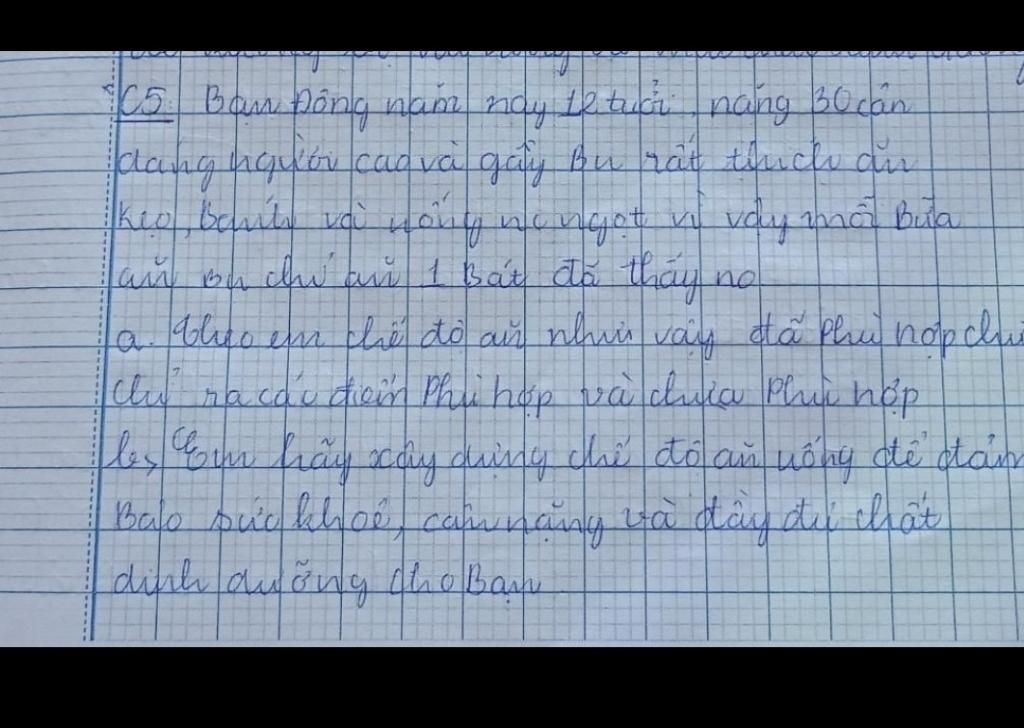 C5: Bạn Đông năm nay 12 tuổi, nặng 30 cân
dáng người cao và gầy Bn rất thích ăn
kẹo, Bánh và uống nc ngọt vì vậy mỗi Bữa
ăn Bn chỉ ăn 1 Bát đã thấy no
a. theo em chế độ ăn như vậy đã phù hợp
chỉ ra các điểm Phù hợp và chưa Phù hợp
b, Em hãy xây dựng chế độ ăn uống để đảm
Bảo sức khoẻ, cân nặng và đầy đủ chất
dinh dưỡng cho Bạn